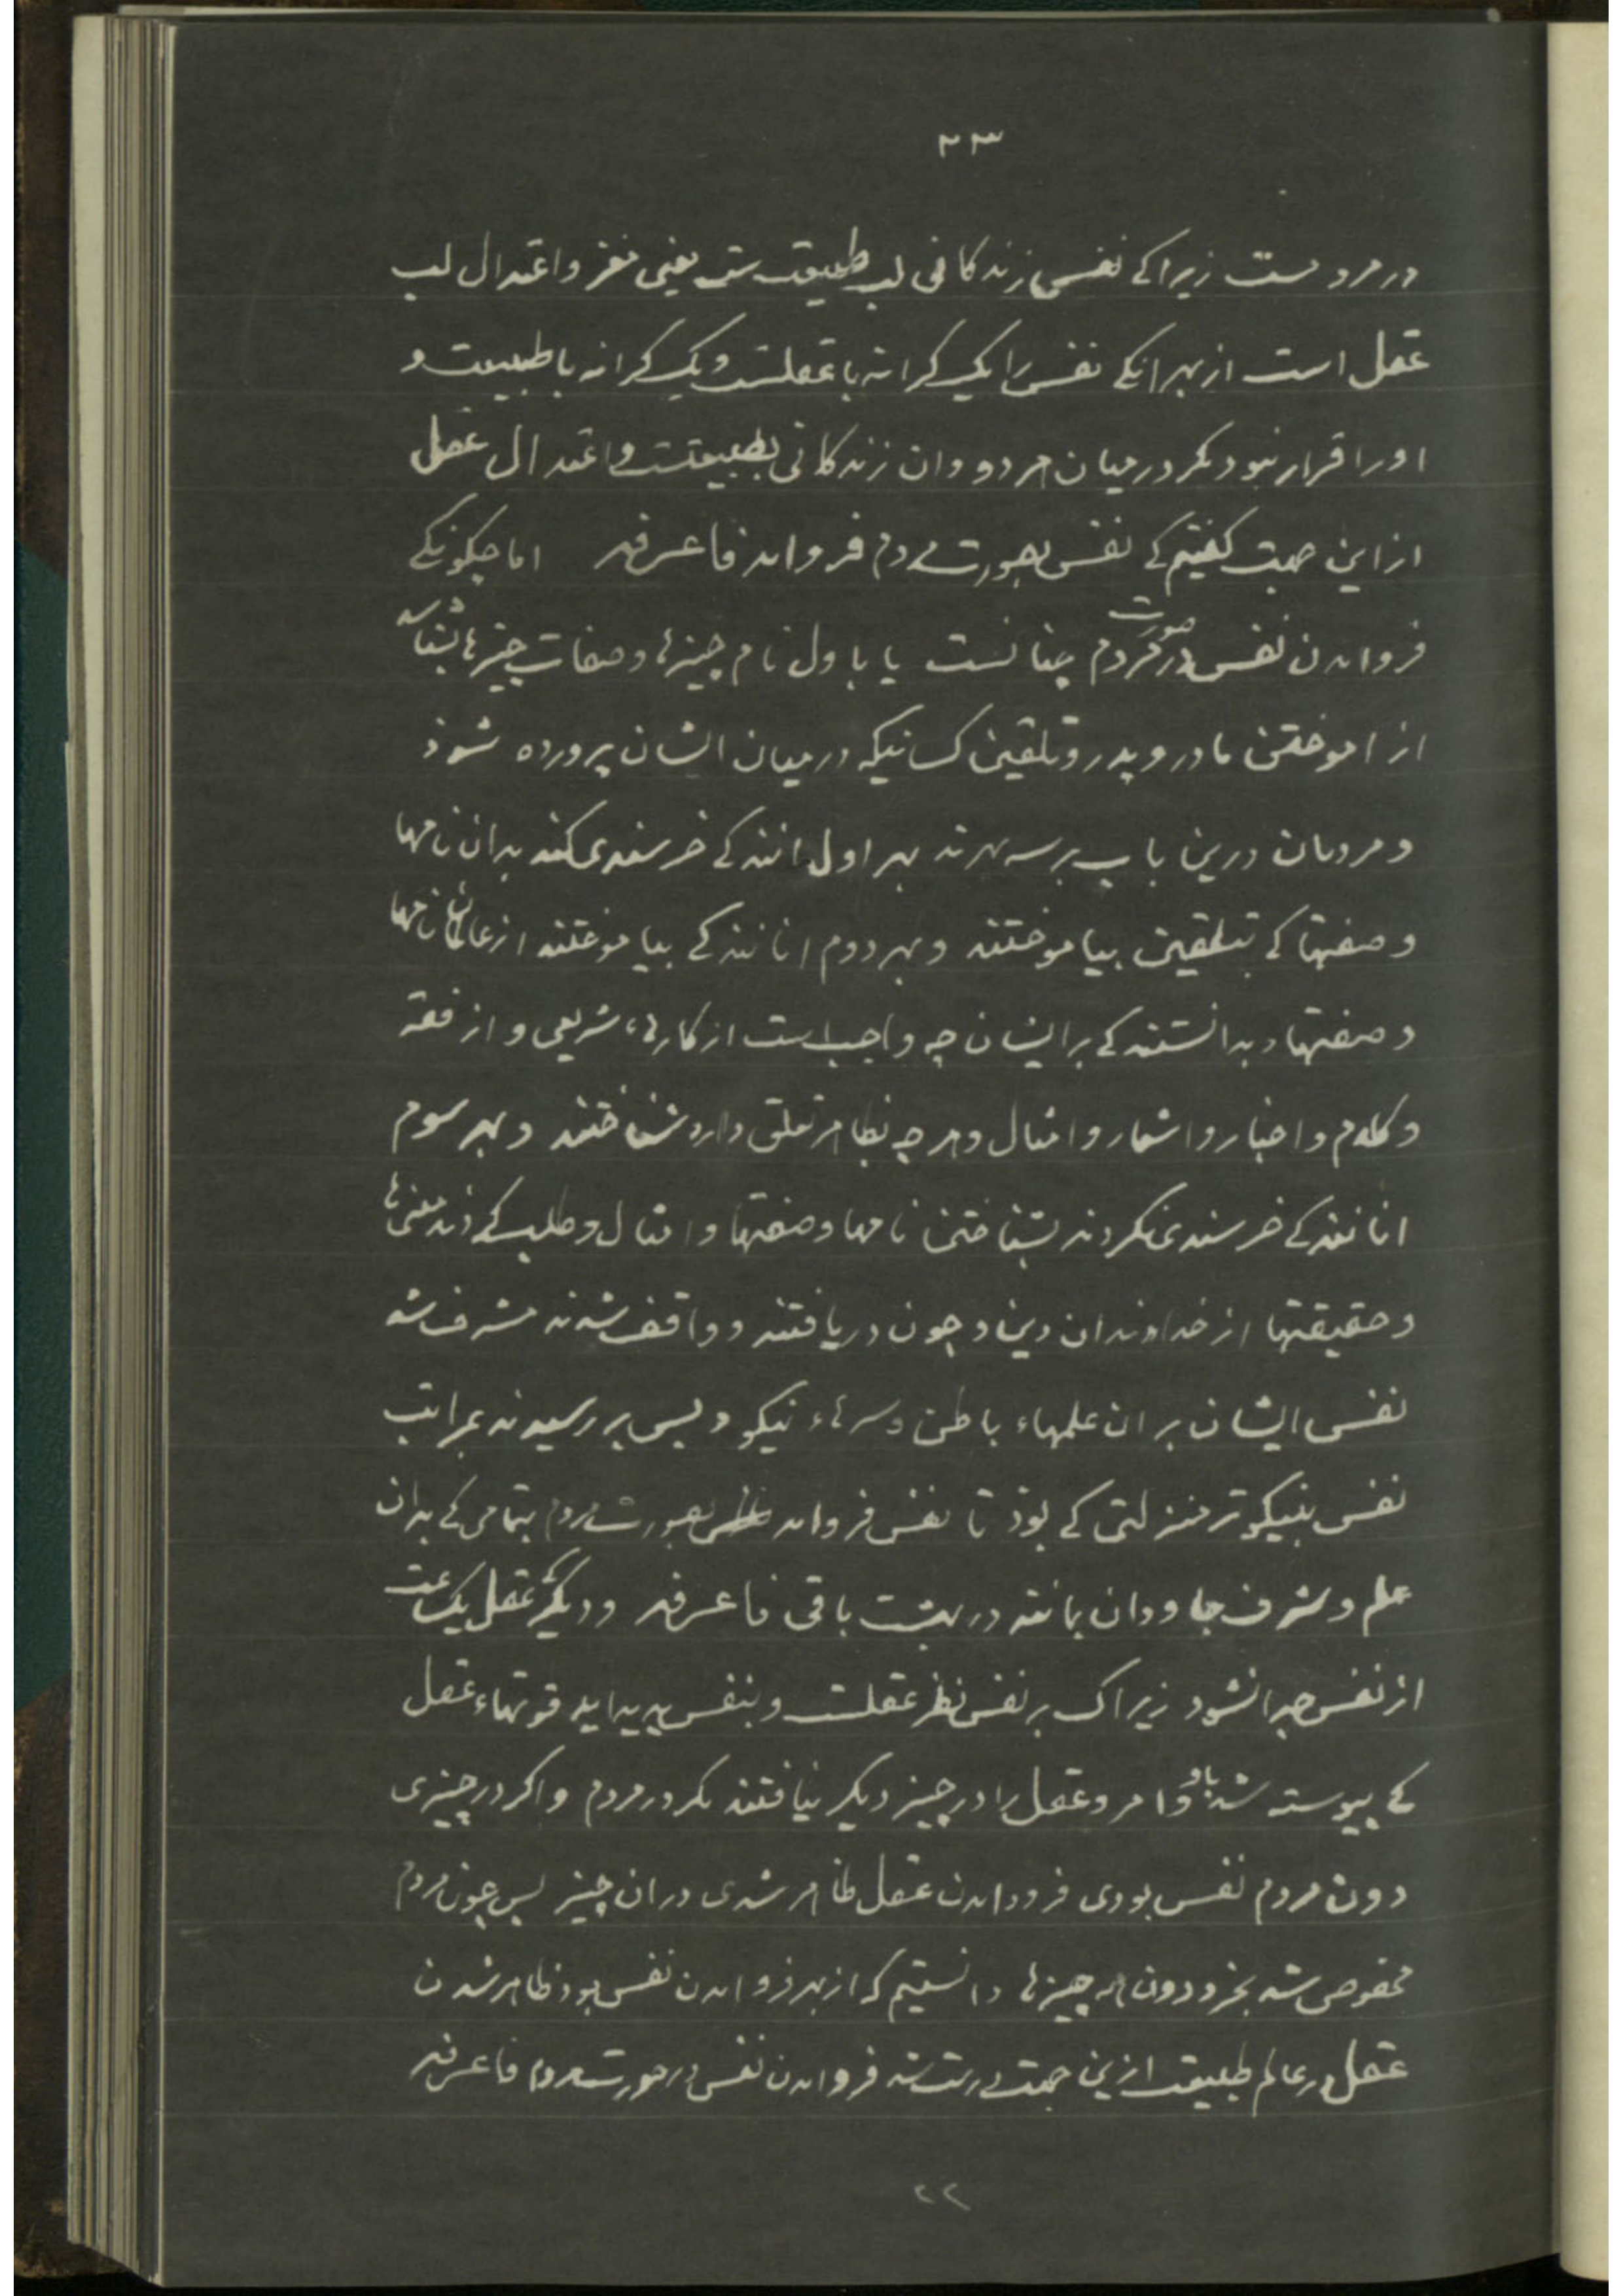 ۲۳
در مردمست زیرا کے نفس زندکانی لب طبیعت ست یعنی مغز و اعتدال لب
عقل است از بهر انکے نفس را یک کرانه با عقلست و یک کرانه با طبیعت و
او را قرار نبود مکر در میان هر دو و ان زندکانی بطبیعتست و اعتدال عقل
از این جهت کفتیم کے نفس بصورت مردم فرو امد فاعرفه اما چکونکے
فرو امدن نفس در صورت مردم چنانست یا باول نام چیزها و صفات چیزها بشناسد
از اموختن مادر و پدر و تلقین کسانیکه در میان ایشان پرورده شوذ
و مردمان درین باب بر سه بهرند بهر اول انند کے خرسندی کنند بدان نامها
و صفتها کے بتلقین بیاموختند و بهر دوم انانند کے بیاموختند از عالمان نامها
و صفتها و بدانستند کے بر ایشان چه واجب است از کارهاء شریعی و از فقه
و کلام و اخبار و اشعار و امثال و هر چه بظاهر تعلق دارد شناختند و بهر سوم
انانند کے خرسندی نکردند بشناختن نامها و صفتها و امثال و طلب کردند معنی‌ها
و حقیقتها از خداوندان دین و چون دریافتند و واقف شدند مشرف شد
نفس ایشان بر ان علمهاء باطن و سرهاء نیکو و بس بررسیدند بمراتب
نفس بنیکوتر منزلتی کے بوذ تا نفس فرو امد بصورت مردم بتمامی کے بدان
علم و شرف جاودان بمانند در بهشت باقی فاعرفه و دیکر کے عقل یک ساعت
از نفس جدا نشود زیراک بر نفس نظر عقلست و بنفس پدید اید قوتهاء عقل
کے پیوسته شد باو وا مر و عقل را در چیز دیکر نیافتند مکر در مردم و اکر در چیزی
دون مردم نفس بودی فرود امدن عقل ظاهر شدی در ان چیز پس چون مردم
مخصوص شد بخرد دون همه چیزها دانستیم که از بهر فرو امدن نفس بوذ ظاهر شدن
عقل در عالم طبیعت ازین جهت درست شد فرو امدن نفس در صورت مردم فاعرفه
۲۲